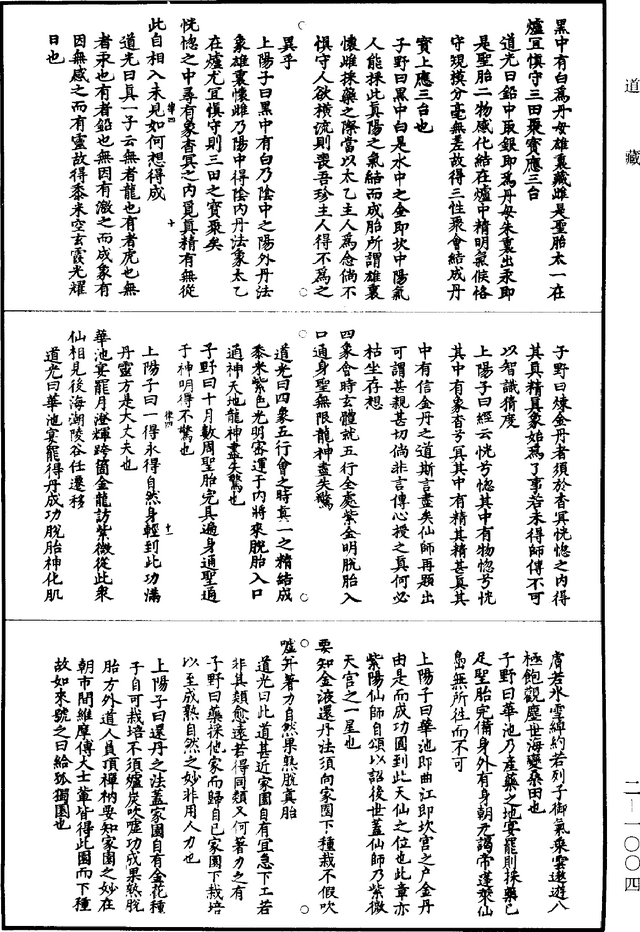 黑中有白爲丹母雄裏藏雌是聖胎太一在
爐宜慎守三田聚寶應三台
道光曰鉛中取銀即爲丹母朱裏出汞即
是聖胎二物感化結在爐中精明氣候恪
守規模分毫無差故得三性聚會結成丹
寶上應三台也
子野曰黑中白是水中之金即坎中陽氣
人能採此真陽之氣結而成胎所謂雄裏
懷雌採藥之際當以太乙主人爲念倘不
慎守人欲橫流則喪吾珍主人得不爲之
異乎
上陽子曰黑中有白乃陰中之陽外丹法
象雄裏懷雌乃陽中得陰内丹法象太乙
在爐尤宜慎守則三田之寶聚矣
恍惚之中尋有象杳冥之内覓真精有無從
律四 十
此自相入未見如何想得成
道光曰真一子云無者龍也有者虎也無
者汞也有者鉛也無因有激之而成象有
因無感之而有靈故得黍米空玄霞光燿
日也
子野曰煉金丹者須於杳冥恍惚之内得
其真精真象始爲了事若未得師傳不可
以智識猜度
上陽子曰經云恍兮惚其中有物惚兮恍
其中有象杳兮冥其中有精其精甚真其
中有信金丹之道斯言盡矣仙師再題出
可謂甚親甚切倘非言傳心授之真何必
枯坐存想
四象會時玄體就五行全處紫金明脫胎入
口通身聖無限龍神盡失驚
道光曰四象五行會之時真一之精結成
黍米紫色光明密運于内將來脫胎入口
通神天地龍神盡失驚也
子野曰十月數周聖胎完具遍身通聖通
于神明得不驚也
律四 十一
上陽子曰一得永得自然身輕到此功滿
丹靈方是大丈夫也
華池宴罷月澄輝跨箇金龍訪紫微從此衆
仙相見後海潮陵谷任遷移
道光曰華池宴罷得丹成功脫胎神化肌
膚若氷雪綽約若列子御氣乘雲遨遊八
極飽觀塵世海變桑田也
子野曰華池乃產藥之地宴罷則採藥已
足聖胎完備身外有身朝元謁帝蓬萊仙
島無所往而不可
上陽子曰華池即曲江即坎宫之户金丹
由是而成功圓到此天仙之位也此章亦
紫陽仙師自頌以詔後世蓋仙師乃紫微
天宫之一星也
要知金液還丹法須向家園下種栽不假吹
嘘并著力自然果熟脫真胎
道光曰此道甚近家園自有宜急下工若
非其類愈遠若得同類又何著力之有
子野曰藥採他家而歸自己家園下栽培
以至成熟自然之妙非用人力也
上陽子曰還丹之法蓋家園自有金花種
子自可栽培不須爐炭吹嘘功成果熟脫
胎方外道人員頂禪衲要知家園之妙在
朝市間維摩傅大士軰皆得此園而下種
故如來號之曰給孤獨園也
道藏
二—一〇〇四